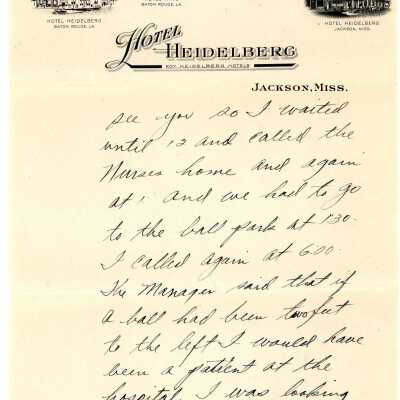 BATON ROUGE, LA.
HOTEL HEIDELBERG
BATON ROUGE, LA.
HOTEL HEIDELBERG
JACKSON, MISS.
HOTEL HEIDELBERG
ROY HEIDELBERG HOTELS
JACKSON, MISS.
see you so I waited
until 12 and called the
Nurses home and again
at 1 and we had to go
to the ball park at 130.
I called again at 600.
The Manager said that if
a ball had been two feet
to the left I would have
been a patient at the
hospital. I was looking